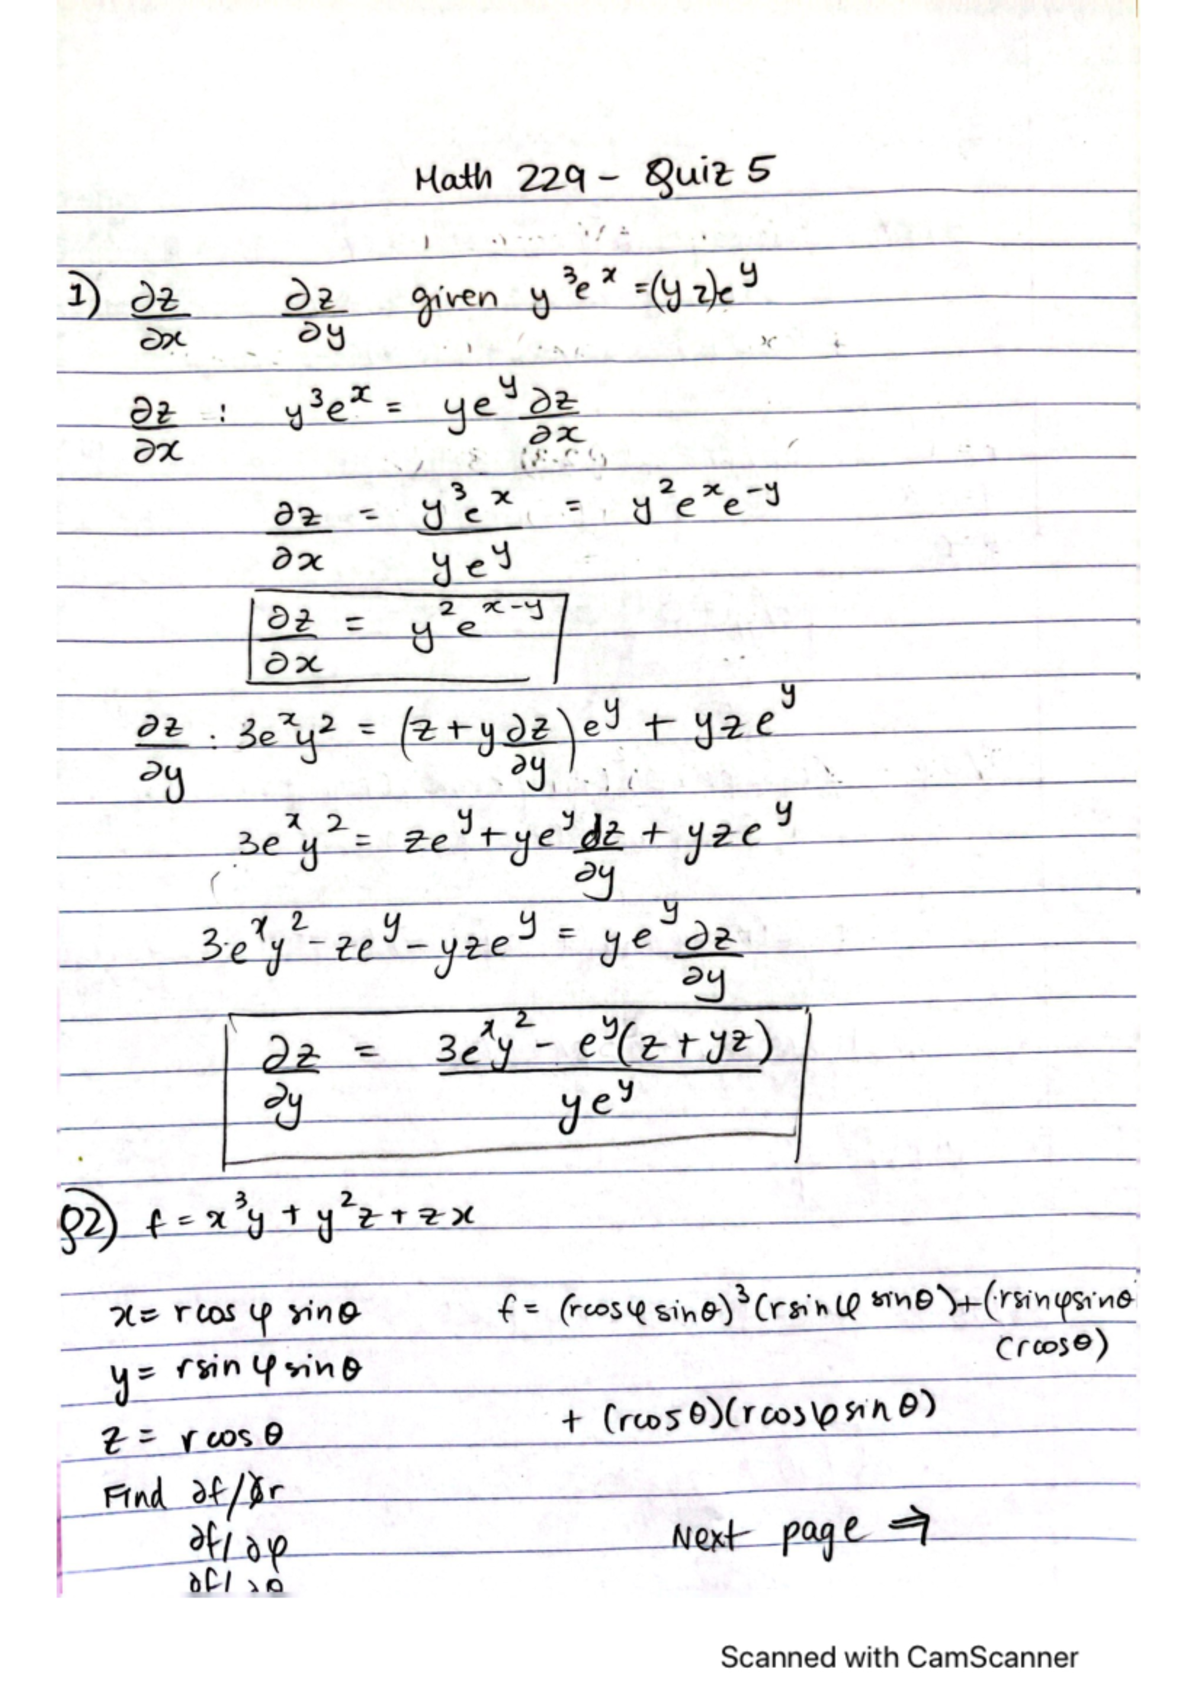 Math 229 - Quiz 5
1) ∂z/∂x ∂z/∂y given y³eˣ = (yz)e^y
∂z/∂x : y³eˣ = ye^y ∂z/∂x
∂z/∂x = y³eˣ/ye^y = y²eˣe^-y
∂z/∂x = y²e^x-y
∂z/∂y : 3eˣy² = (z + y ∂z/∂y)e^y + yze^y
3eˣy² = ze^y + ye^y dz/∂y + yze^y
3·eˣy² - ze^y - yze^y = ye^y ∂z/∂y
∂z/∂y = 3eˣy² - e^y(z + yz)/ye^y
Q2) f = x³y + y²z + zx
x = rcosφ sinθ f = (rcosφ sinθ)³(rsinφ sinθ) + (rsinφsinθ
(rcosθ)
y = rsinφ sinθ
+ (rcosθ)(rcosφsinθ)
z = rcosθ
Find ∂f/∂r
∂f/∂φ
Next page ⇒
∂f/∂θ
Scanned with CamScanner